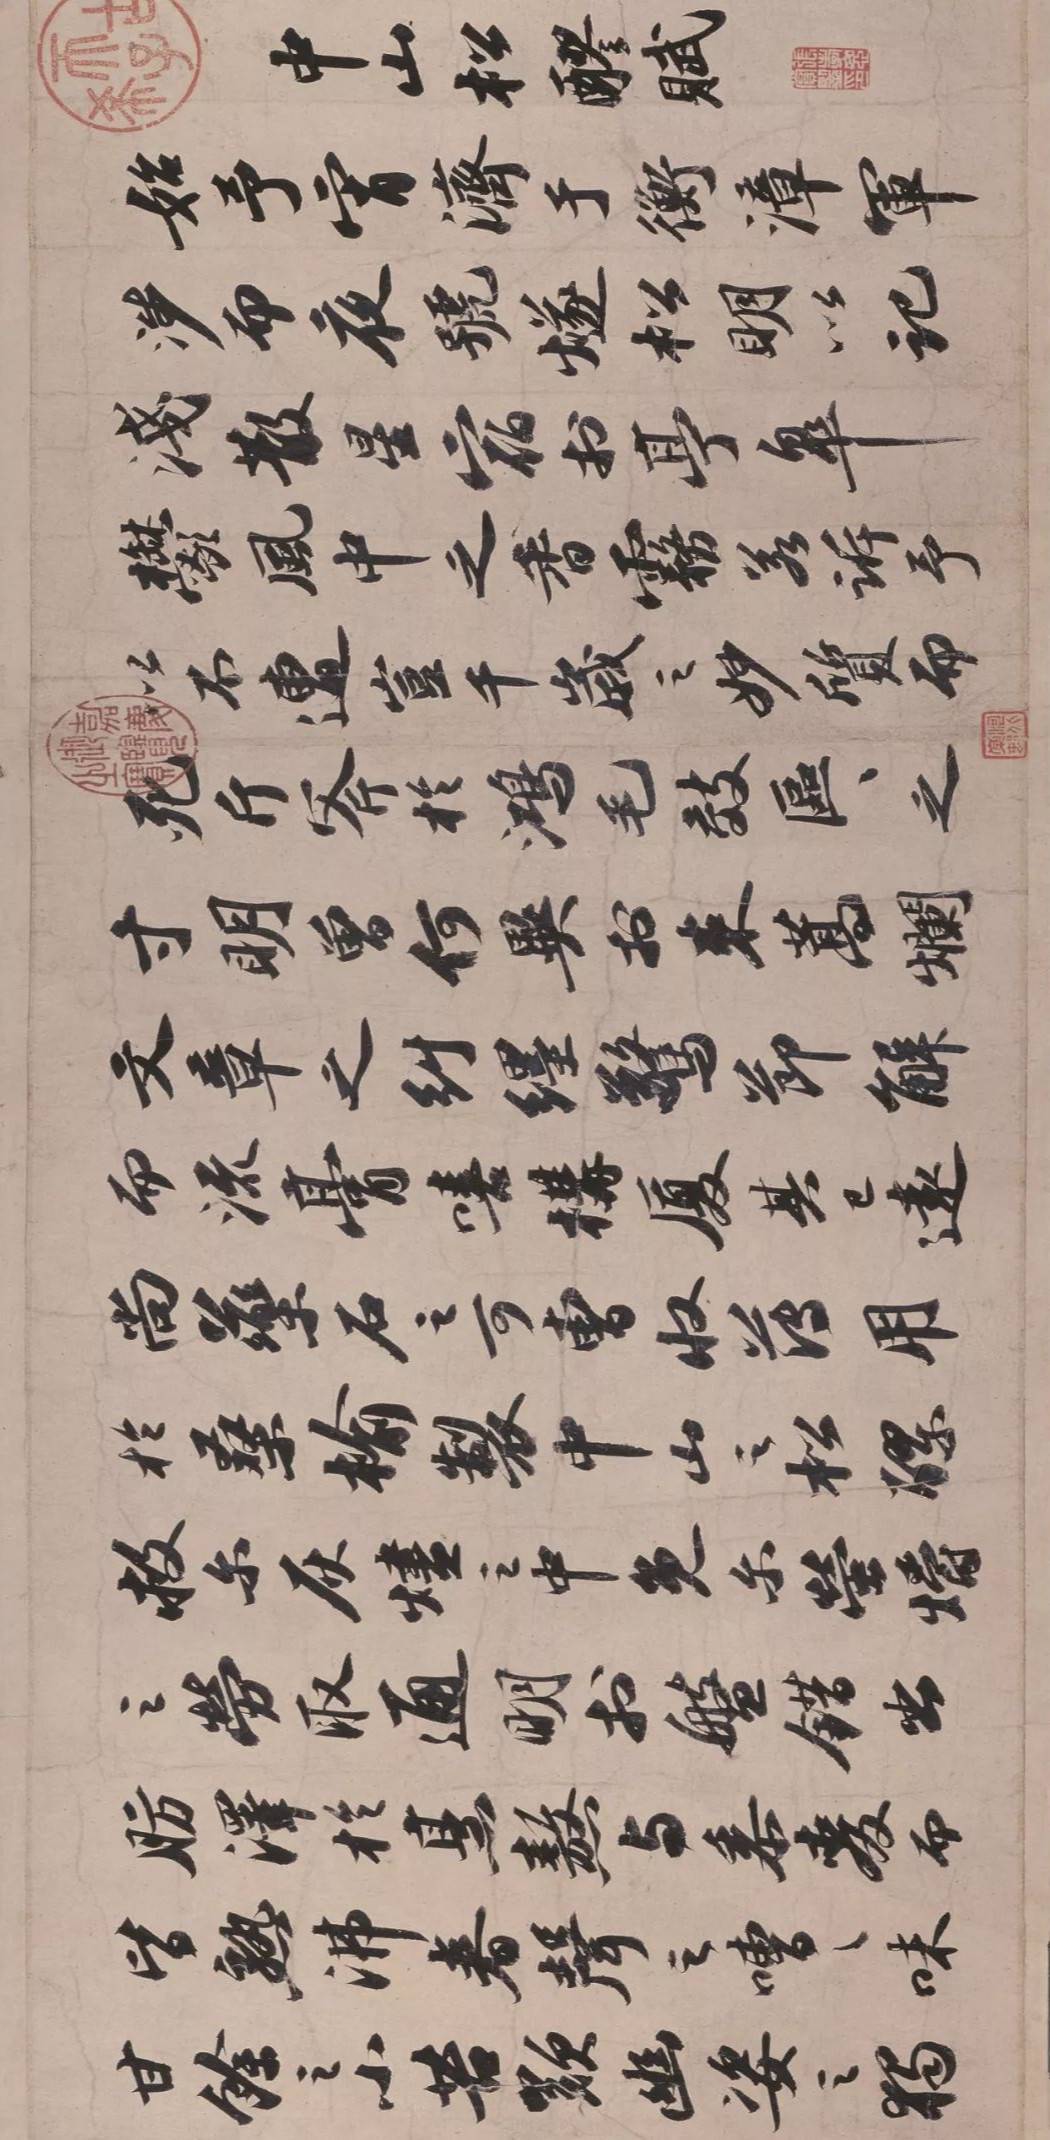 中山松醪賦
始予宵濟于衡漳軍
涉而夜號燧松明以記
淺散星宿於亭皋
鬱風中之香霧若訴予
以不遭豈千歲之妙質而
死斤斧於鴻毛效區〻之
寸明曾何異於束蒿爛
文章之糾纆驚節解
而流膏嘻構廈其已遠
尚藥石之可曹收薄用
於桑榆製中山之松醪
救尔灰燼之中免尔螢爝
之勞取通明於盤錯出
肪澤於烹熬與黍麥而
皆熟沸舂聲之嘈〻味
甘餘之小苦歎幽姿之獨
嘉慶御覽之寶